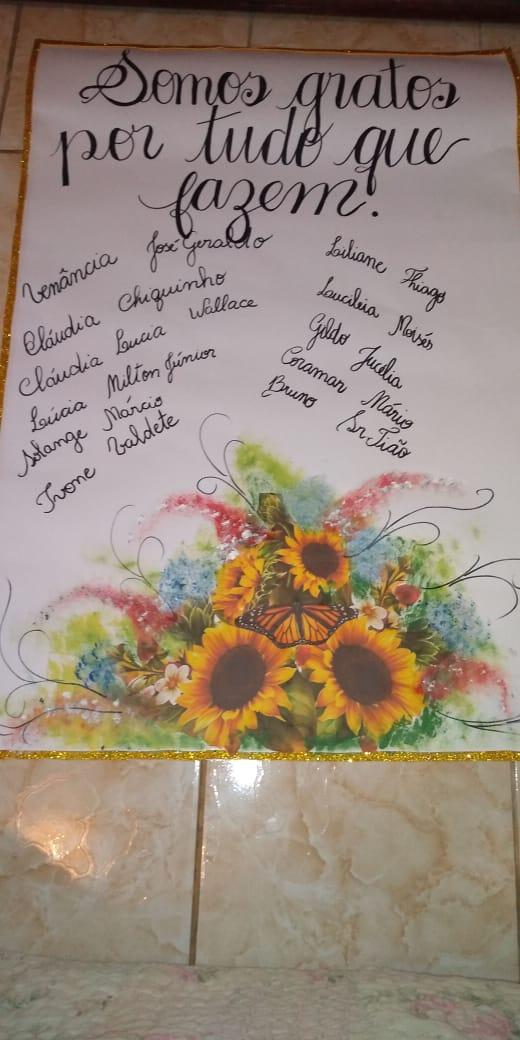 Somos gratos
por tudo que
fazem.
Venância José Geraldo
Cláudia Chiquinho
Cláudia Lucia Wallace
Lúcia Milton Júnior
Solange Márcio
Ivone Valdete
Liliane Thiago
Laucileia Moisés
Geldo Jucelia
Coraman Mário
Bruno Sr. Tião